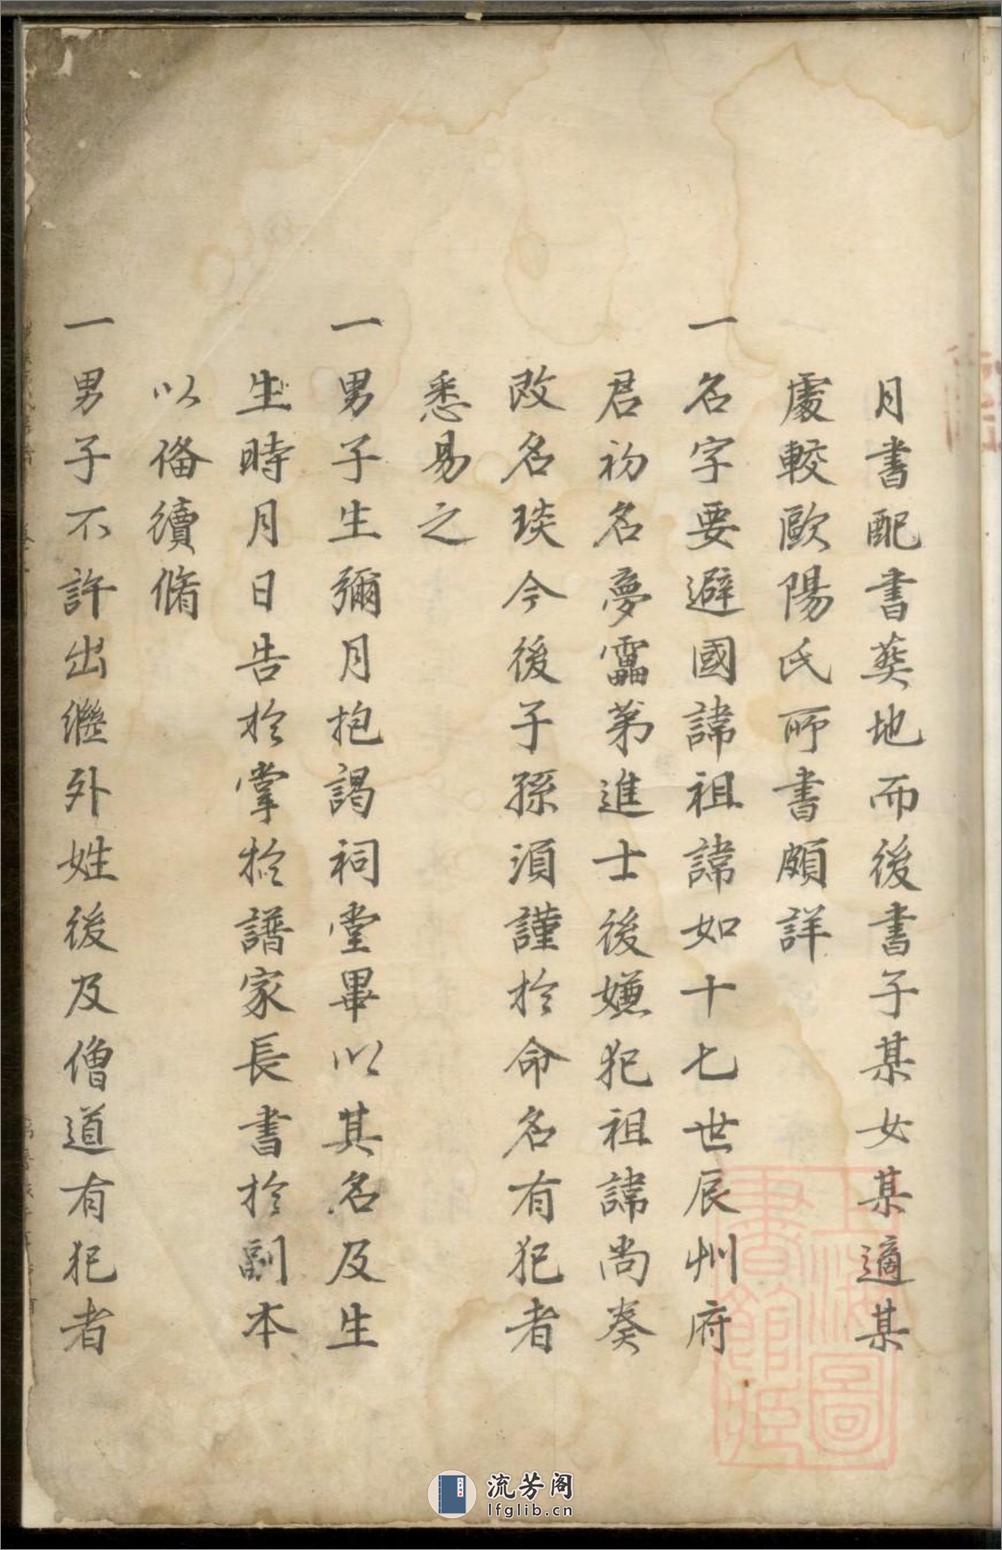 月書配書葬地而後書子某女某適某
處較歐陽氏所書頗詳
一名字要避國諱祖諱如十七世辰州府
君初名夢靁第進士後嫌犯祖諱尚奏
改名琰今後子孫須謹於命名有犯者
悉易之
一男子生彌月抱謁祠堂畢以其名及生
生時月日告於掌於譜家長書於副本
以俻續脩
一男子不許出繼外姓後及僧道有犯者
上海圖
書館藏
流芳阁
lfglib.cn